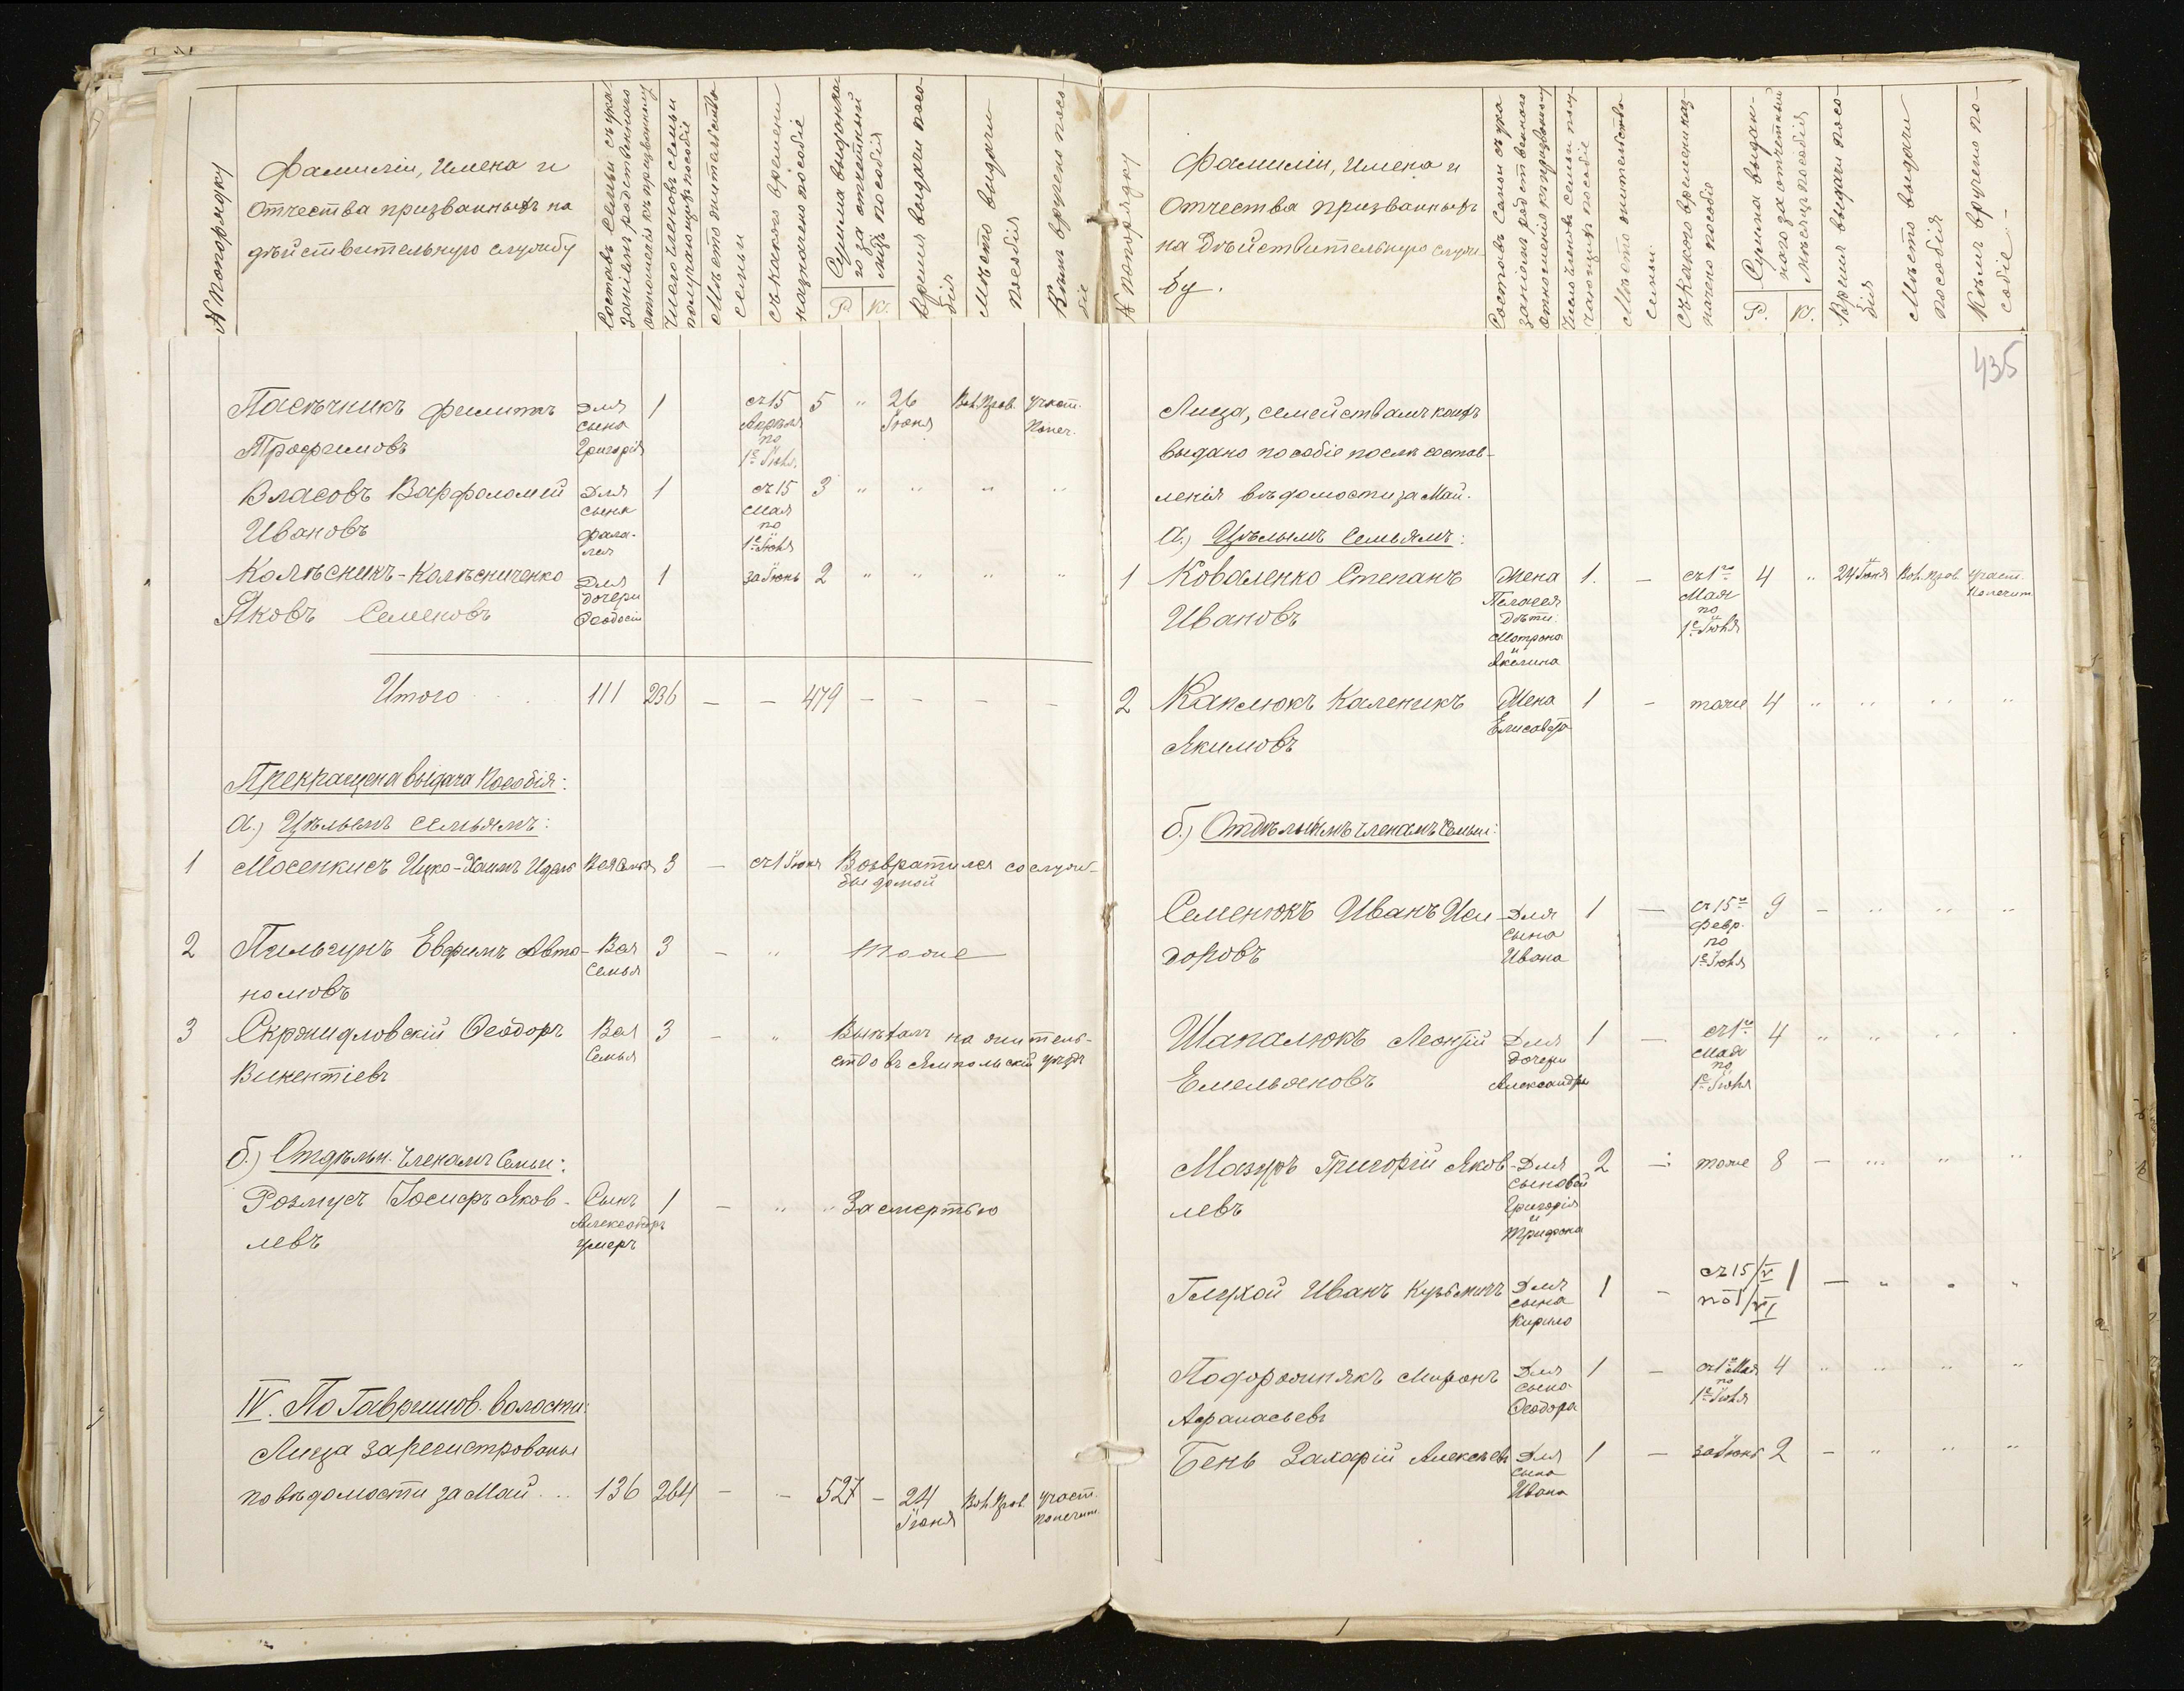 № по порядку
Фамиліи, имена и
отчества призванныхъ на
дѣйствительную службу
Составъ семьи съ ука-
заніемъ родственнаго
отношенія къ призванному
Число членовъ семьи
получающихъ пособіе
Мѣсто жительства
семьи
Съ какого времени
назначено пособіе
Сумма выданна-
го за отчетный
мѣсяцъ пособія
Р. К.
Время выдачи посо-
бія
Мѣсто выдачи
пособія
Кѣмъ вручено посо-
біе
Пасѣчникъ Филиппъ Для 1 съ 15 5 " 26 Вол. Прав. Участ.
сына Апрѣля Іюня Попеч.
Трофимовъ Григорія по
1е Іюля
Власовъ Варфоломей Для 1 съ 15 3 " " " "
сына Мая
Ивановъ по
1е Іюля
Колѣсникъ-Колѣсниченко Для 1 за Іюнь 2 " " " "
дочери
Яковъ Семеновъ Ѳеодосіи
Итого 111 236 — — 479 — — — —
Прекращена выдача пособія:
а.) Цѣлымъ семьямъ:
1 Мосенкисъ Ицко-Хаимъ Вся семья 3 — съ 1 Іюня Возвратился со служ-
бы домой
2 Пильгунъ Евфимъ Авто- Вся 3 — " тоже
семья
номовъ
3 Скржидловскій Ѳеодоръ Вся 3 — " Выѣхалъ на житель-
семья ство въ Ямпольскій уѣздъ
Викентіевъ
б.) Отдѣльн. членамъ семьи:
Розмусъ Іосифъ Яков- Сынъ 1 — " " За смертью
Александръ
левъ умеръ
IV. По Гавришов. волости:
Лица зарегистрованы
по вѣдомости за Май . . 136 264 — — 527 — 24 Вол. Прав. Участ.
Іюня Попечит.
435
№ по порядку
Фамиліи, имена и
отчества призванныхъ
на дѣйствительную служ-
бу.
Составъ семьи съ ука-
заніемъ родственнаго
отношенія къ призванному
Число членовъ семьи полу-
чающихъ пособіе
Мѣсто жительства
семьи
Съ какого времени наз-
начено пособіе
Сумма выдан-
наго за отчетный
мѣсяцъ пособія
Р. К.
Время выдачи посо-
бія
Мѣсто выдачи
пособія
Кѣмъ вручено по-
собіе.
Лица, семействамъ коихъ
выдано пособіе послѣ состав-
ленія вѣдомости за Май.
а.) Цѣлымъ семьямъ:
1 Коваленко Степанъ Жена 1. — съ 1го 4 " 24 Іюня Вол. Прав. Участ.
Пелагея Мая Попечит.
Ивановъ дѣти: по
Мотрона 1е Іюля
и
Акелина
2 Каплюкъ Каленикъ Жена 1 — тоже 4 " " " "
Елисавета
Якимовъ
б.) Отдѣльнымъ членамъ семьи:
Семенюкъ Иванъ Иси- Для 1 — съ 15го 9 — " " "
сына Февр.
доровъ Ивана по
1е Іюля
Шапалюкъ Леонтій Для 1 — съ 1го 4 " " " "
дочери Мая
Емельяновъ Александры по
1е Іюля
Мазуръ Григорій Яков- Для 2 — тоже 8 — " " "
сыновей
левъ Григорія
и
Трифона
Глухой Иванъ Кузьмичъ Для 1 — съ 15/V 1 — " " "
сына по 1/VI
Кирило
Подорожнякъ Миронъ Для 1 — съ 1го Мая 4 " " " "
сына по
Афанасьевъ Ѳеодора 1е Іюля
Бень Захарій Алексѣевъ Для 1 — за Іюнь 2 — " " "
сына
Ивана